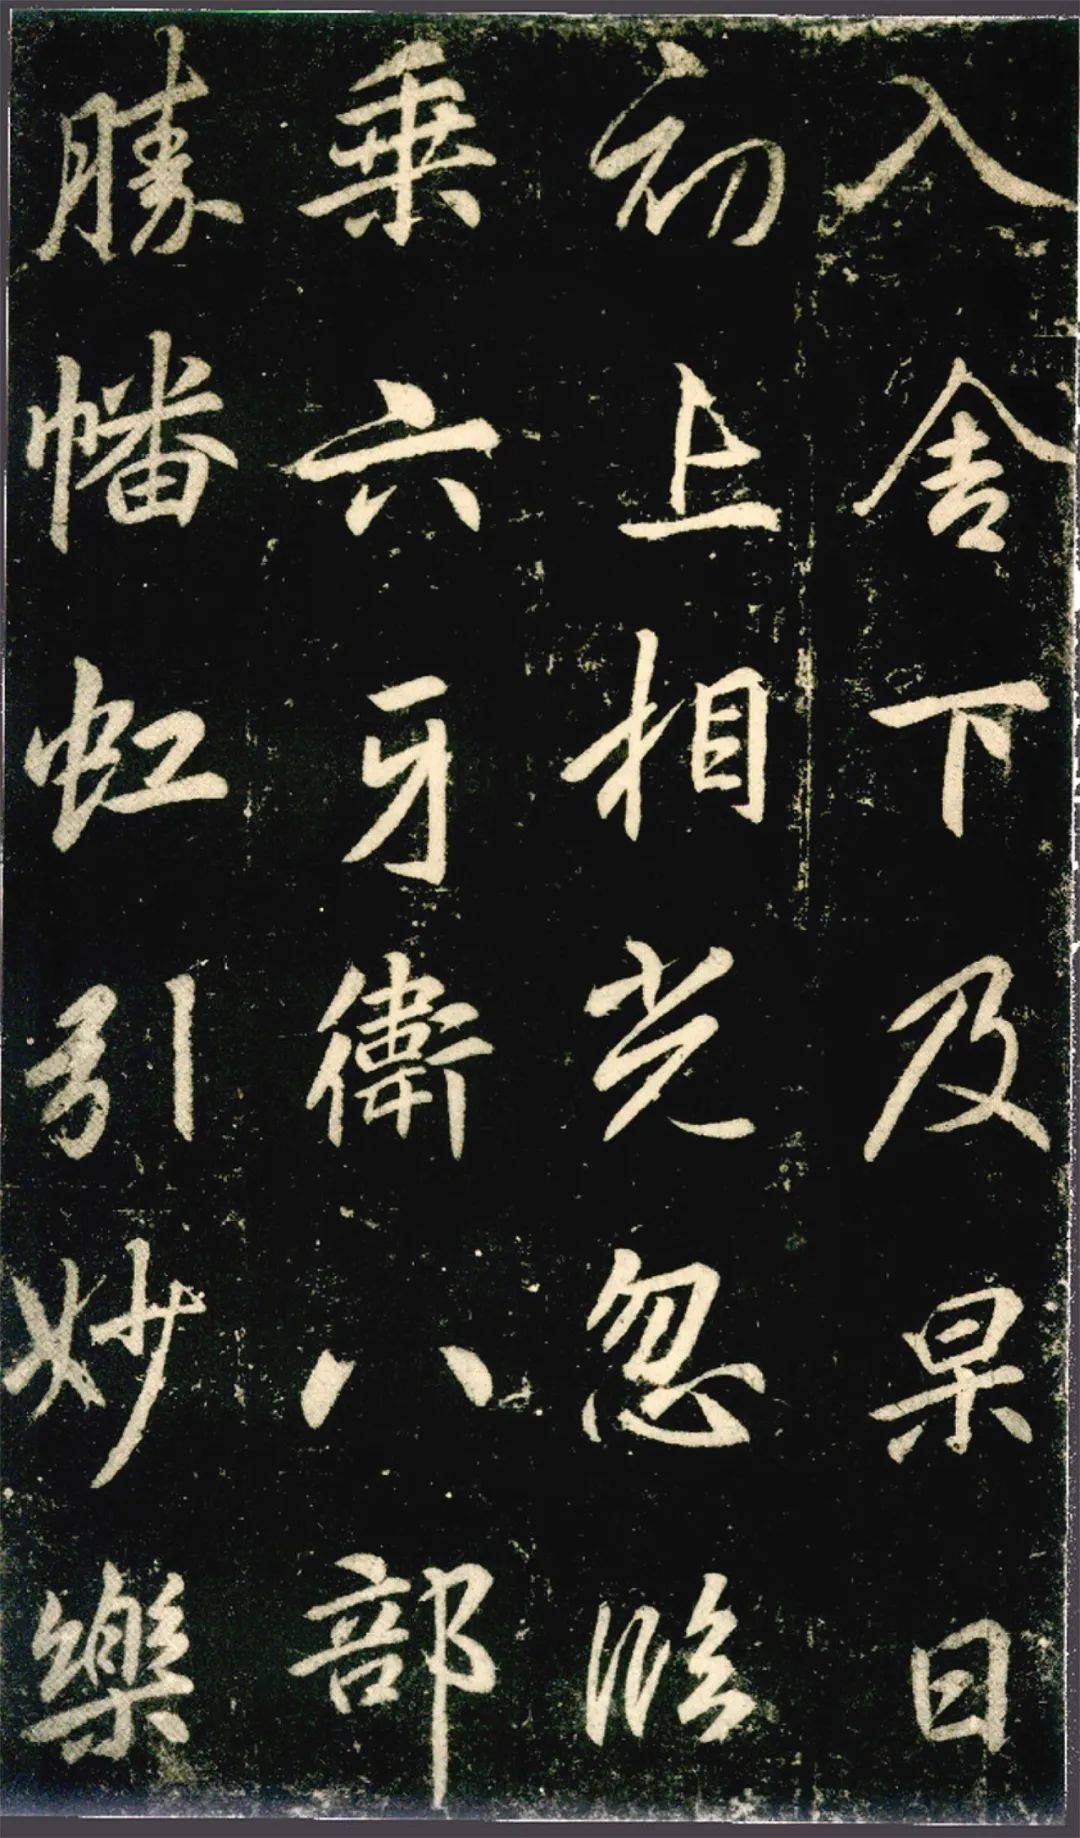 入舍下及果日
初上相光忽臨
乗六牙衛八部
勝幡虹引妙樂